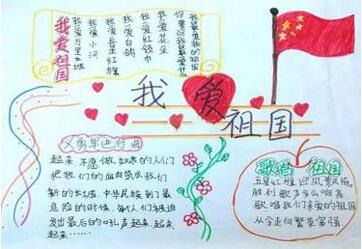 我爱祖国
我最爱我的祖国
你要问我最爱什么
我爱花朵
我爱红领巾
我爱白鸽
我爱五星红旗
我爱小河
我爱万里长城
我爱
祖国
义勇军进行曲
起来 不愿做奴隶的人们
把我们的血肉筑成我们
新的长城，中华民族到了最
危险的时候，每人们被迫
发出最后的吼声起来，起来
起来……
歌唱 祖国
五星红旗迎风飘扬，
胜利歌声多么响亮
歌唱我们亲爱的祖国
从今走向繁荣富强